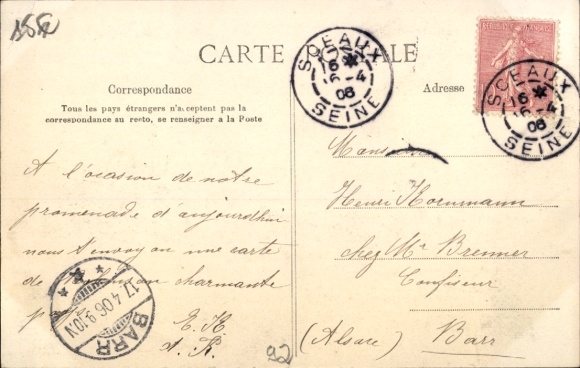 CARTE POSTALE
Correspondance
Tous les pays étrangers n'acceptent pas la
correspondance au recto, se renseigner a la Poste
Adresse
SCEAUX
16 *
16-4
06
SEINE
SCEAUX
16 *
16-4
06
SEINE
A l'ocasion de notre
promenade d'aujourdhui
nous t'envoyon une carte
de charmante
E. K
A. K.
Monsieur
Henri Hornmann
chez Mr Brenner
Confiseur
(Alsace) Barr
17.4.06.9-10.N
BARR
92